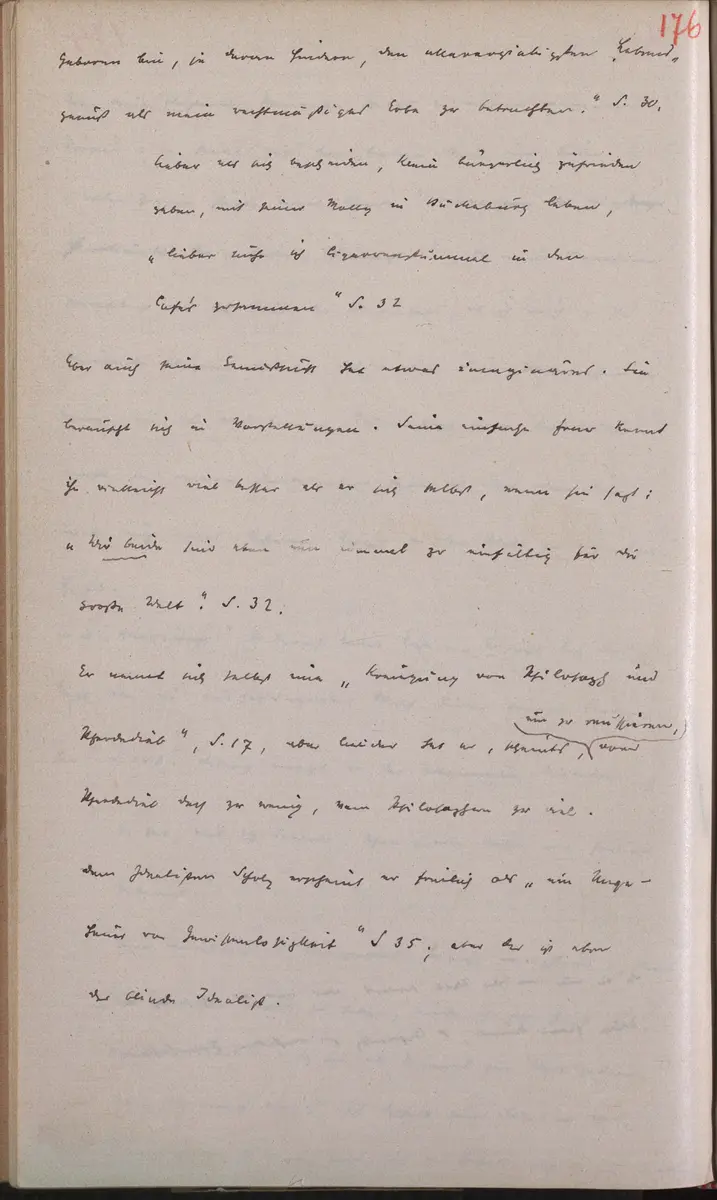 176
geboren bin, je deren hindern, den allerergiebigsten „Lebens-
genuß als mein rechtmäßiges Erbe zu betrachten." S. 30.
lieber als sich bescheiden, klein bürgerlich zufrieden
geben, mit seiner Molly in Bückeburg leben,
„lieber suche ich Cigarrenstummel in den
Cafés zusammen" S. 32
Aber auch seine Genußsucht hat etwas imaginäres. Sie
berauscht sich in Vorstellungen. Seine einfache Frau kennt
ihn vielleicht viel besser als er sich selbst, wenn sie sagt:
„Wir beide sind eben nun einmal zu einfältig für die
große Welt". S. 32.
Er nennt sich selbst eine „Kreuzung von Philosoph und
um zu reussieren,
Pferdedieb", S. 17, aber leider hat er, scheints, vom
Pferdedieb doch zu wenig, vom Philosophen zu viel.
Dem Idealisten Scholz erscheint er freilich als „ein Unge-
heuer von Gewissenlosigkeit" S 35; aber der ist eben
der blinde Idealist.